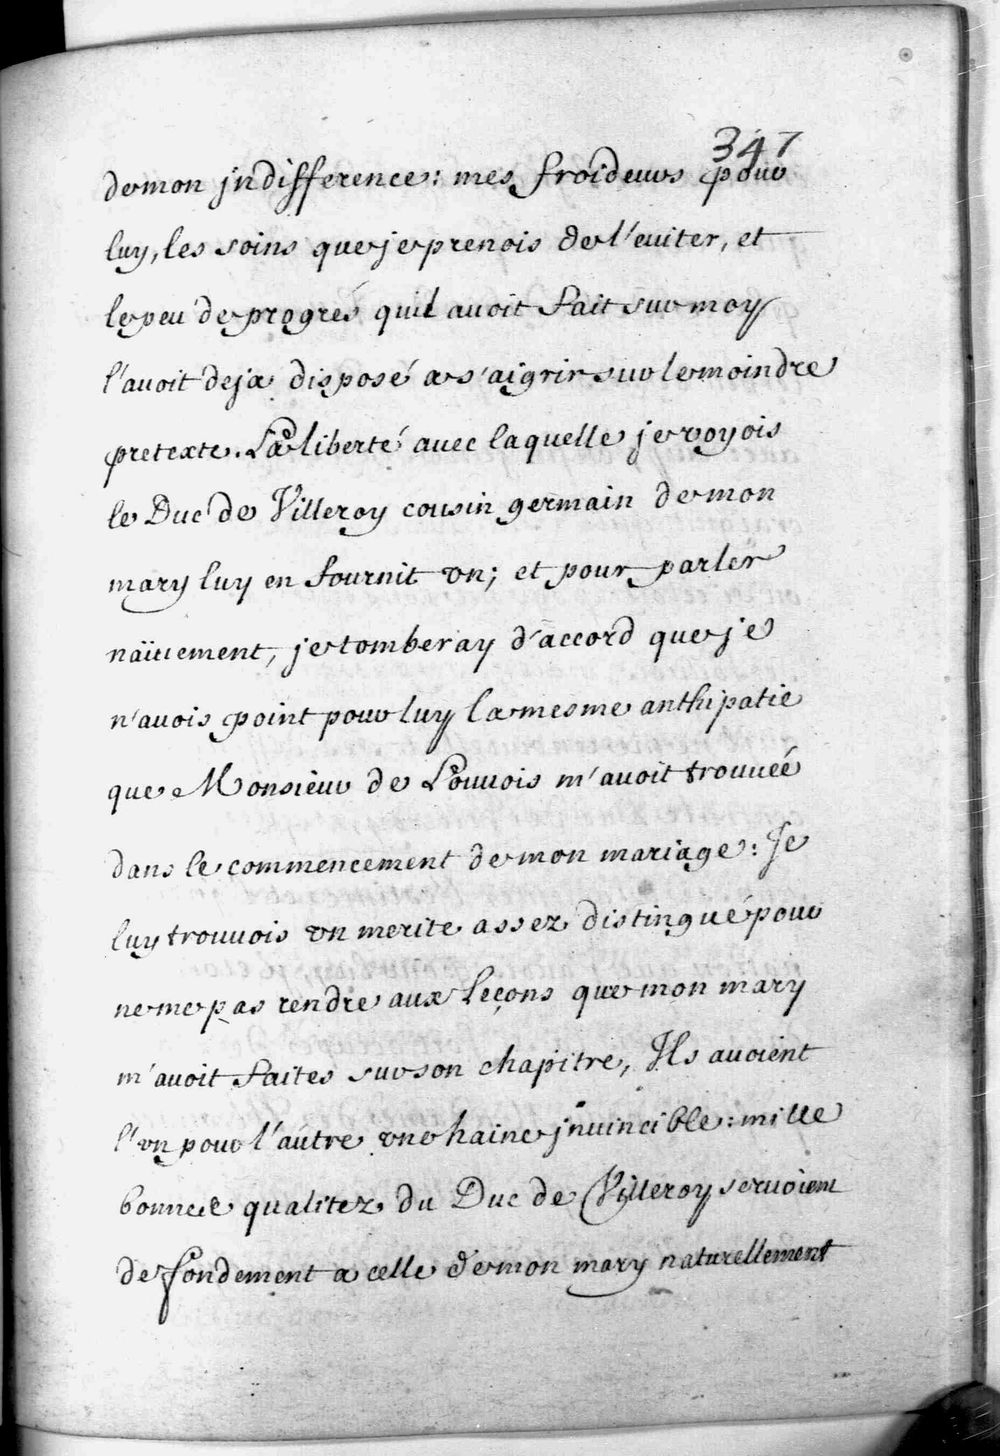 347
de mon jndifference: mes froideurs pour
luy, les soins que je prenois de l'euiter, et
le peu de progrés quil auoit fait sur moy
l'auoit deja disposé a s'aigrir sur le moindre
pretexte. La liberté auec laquelle je voyois
le Duc de Villeroy cousin germain de mon
mary luy en fournit vn; et pour parler
naïuement, je tomberay d'accord que je
n'auois point pour luy la mesme anthipatie
que Monsieur de Louuois m'auoit trouuée
dans le commencement de mon mariage: Je
luy trouuois vn merite assez distingué pour
ne me pas rendre aux leçons que mon mary
m'auoit faites sur son chapitre, Ils auoient
l'vn pour l'autre vne haine jnuincible: mille
bonnes qualitez du Duc de Villeroy seruoient
de fondement a celle de mon mary naturellement